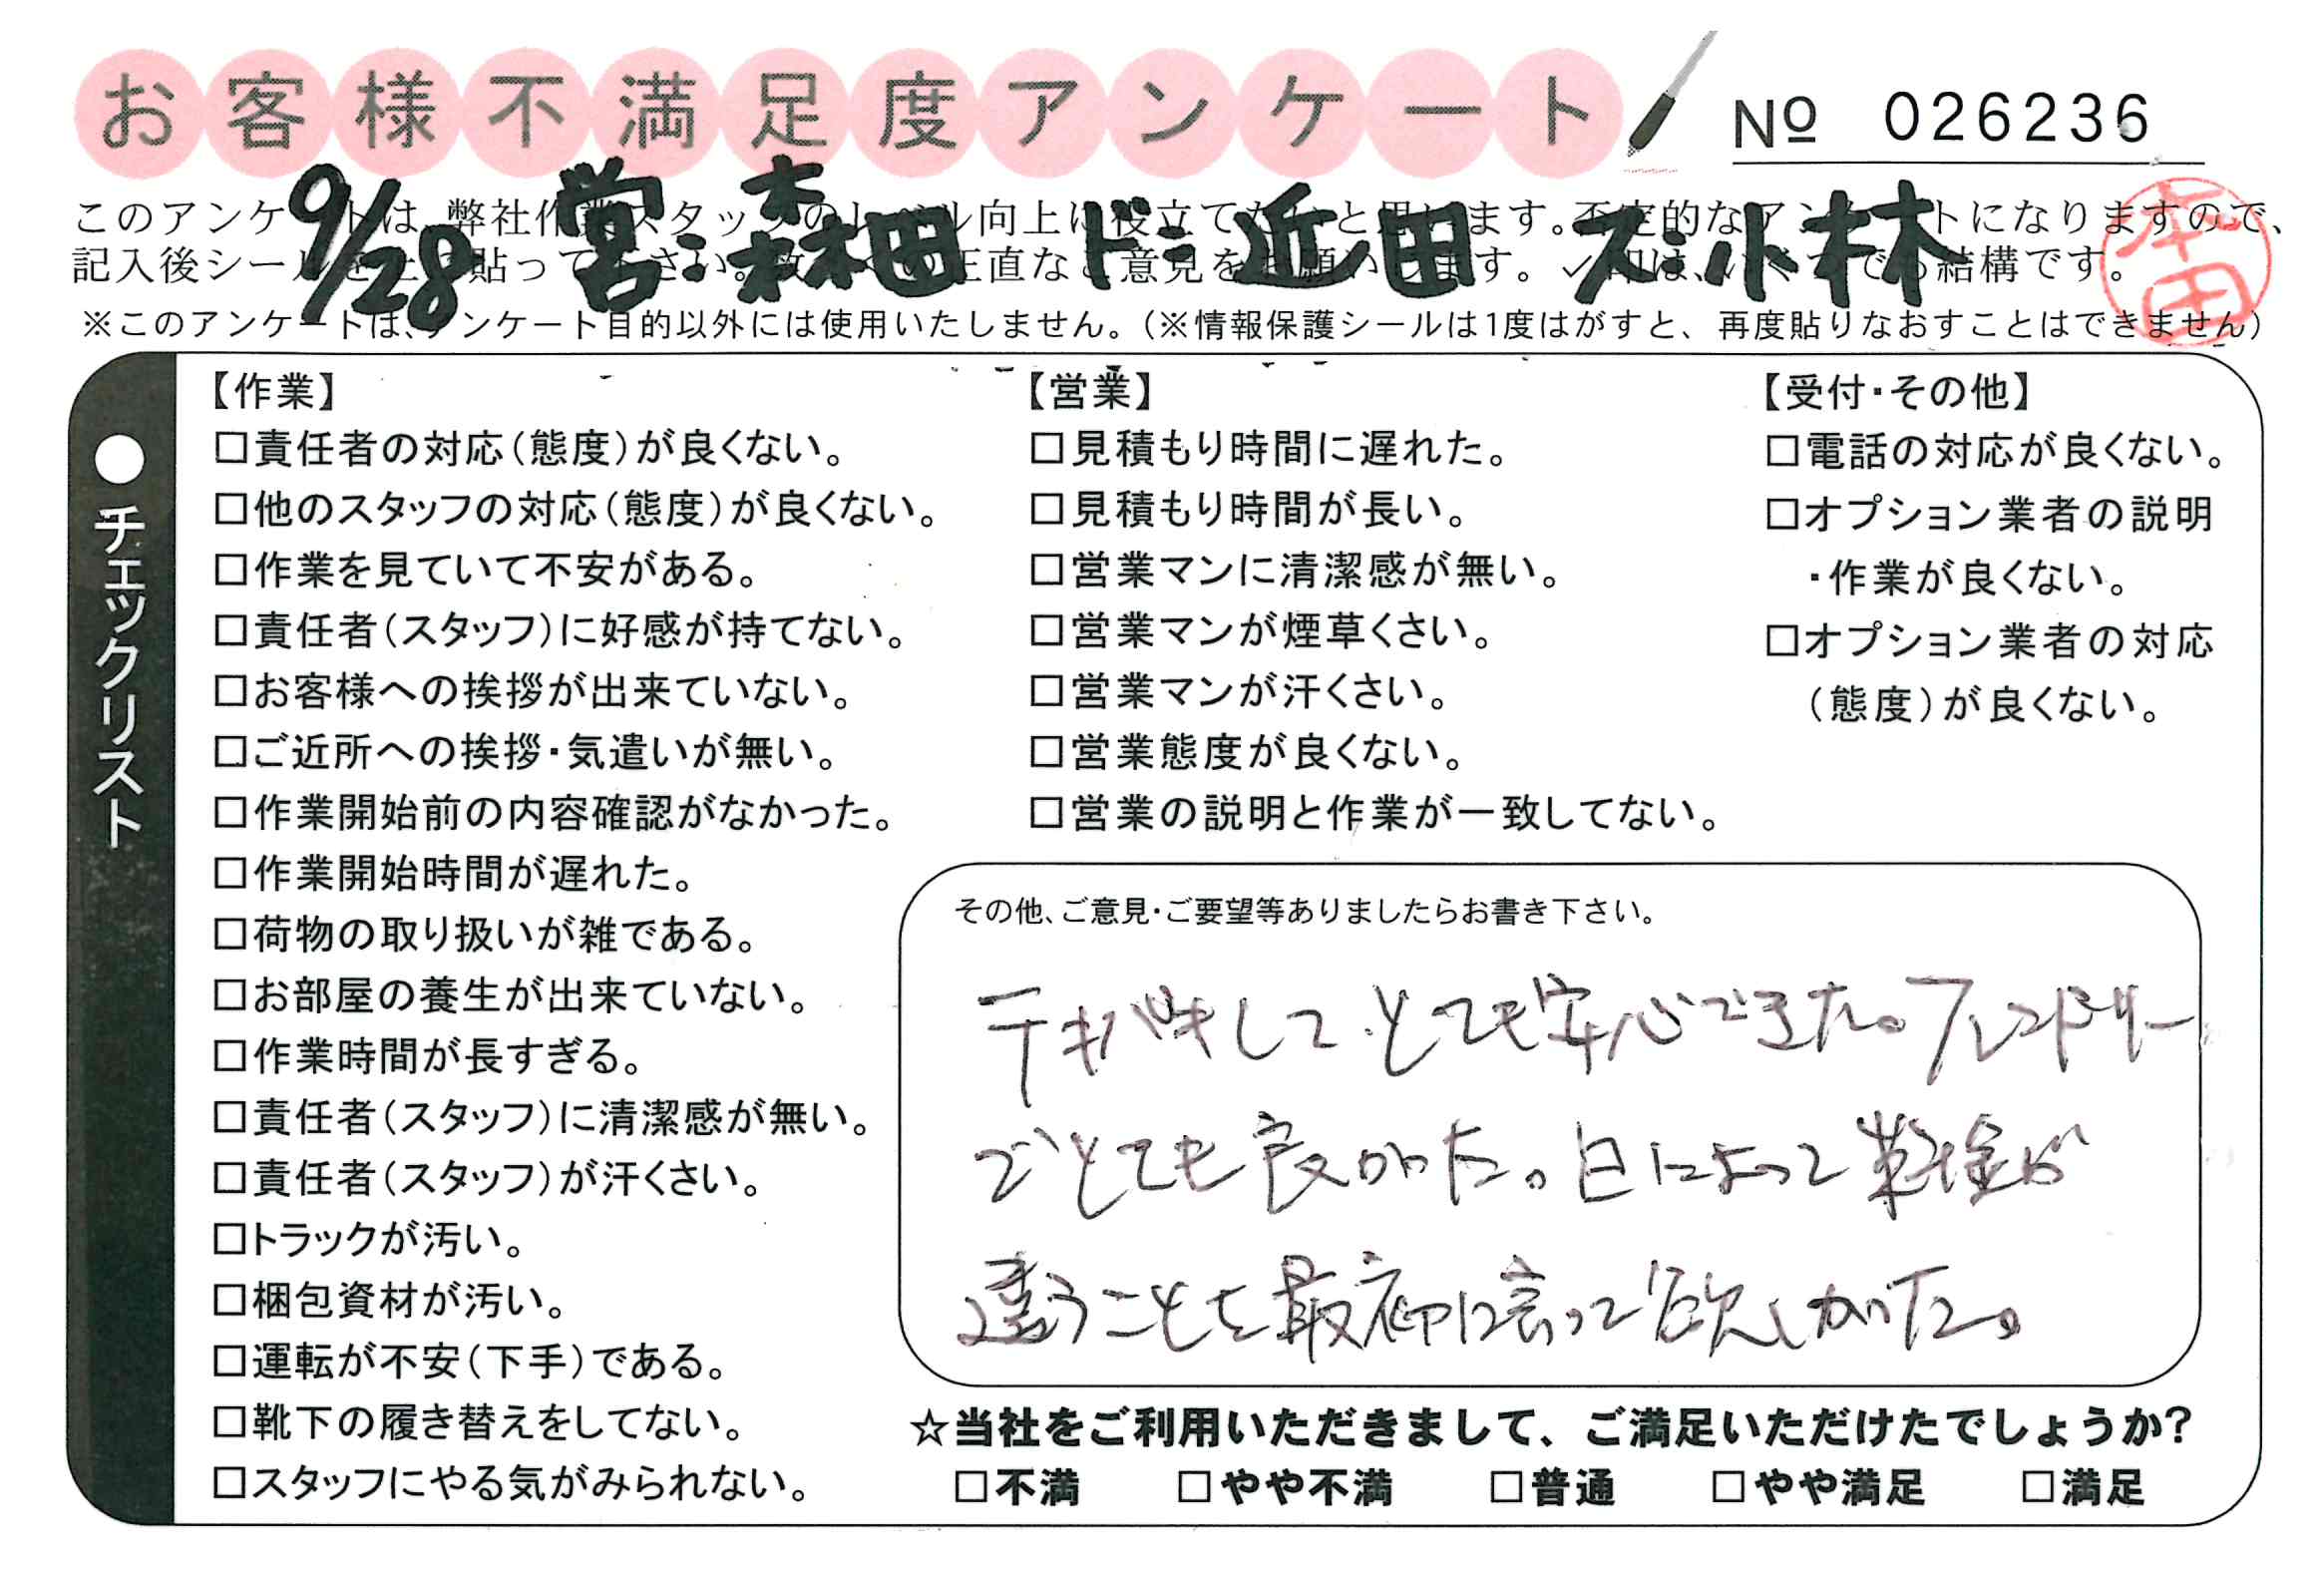 お客様不満足度アンケート
№ 026236
9/28 営:森田 ド:近田 ス:小林
本田
このアンケートは、弊社作業スタッフのレベル向上に役立てたいと思います。不定的なアンケートになりますので、
記入後シールを上に貼って下さい。 正直なご意見をお願いします。✓印は、いくつでも結構です。
※このアンケートは、アンケート目的以外には使用いたしません。(※情報保護シールは1度はがすと、再度貼りなおすことはできません)
●チェックリスト
【作業】
□責任者の対応(態度)が良くない。
□他のスタッフの対応(態度)が良くない。
□作業を見ていて不安がある。
□責任者(スタッフ)に好感が持てない。
□お客様への挨拶が出来ていない。
□ご近所への挨拶・気遣いが無い。
□作業開始前の内容確認がなかった。
□作業開始時間が遅れた。
□荷物の取り扱いが雑である。
□お部屋の養生が出来ていない。
□作業時間が長すぎる。
□責任者(スタッフ)に清潔感が無い。
□責任者(スタッフ)が汗くさい。
□トラックが汚い。
□梱包資材が汚い。
□運転が不安(下手)である。
□靴下の履き替えをしてない。
□スタッフにやる気がみられない。
【営業】
□見積もり時間に遅れた。
□見積もり時間が長い。
□営業マンに清潔感が無い。
□営業マンが煙草くさい。
□営業マンが汗くさい。
□営業態度が良くない。
□営業の説明と作業が一致してない。
【受付・その他】
□電話の対応が良くない。
□オプション業者の説明
・作業が良くない。
□オプション業者の対応
(態度)が良くない。
その他、ご意見・ご要望等ありましたらお書き下さい。
テキパキしてとても安心できた。フレンドリー
でとても良かった。日によって料金が
違うことを最初に言って欲しかった。
☆当社をご利用いただきまして、ご満足いただけたでしょうか?
□不満 □やや不満 □普通 □やや満足 □満足